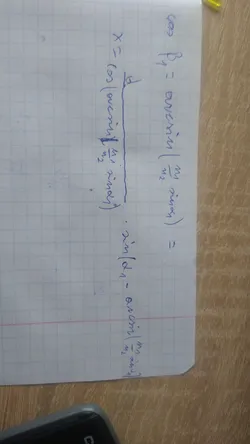 cos β₁ = arcsin(n₁/n₂ sinα₁) =
x = d/cos(arcsin(n₁/n₂ sinα₁)) · sin(α₁ - arcsin(n₁/n₂ sinα₁))